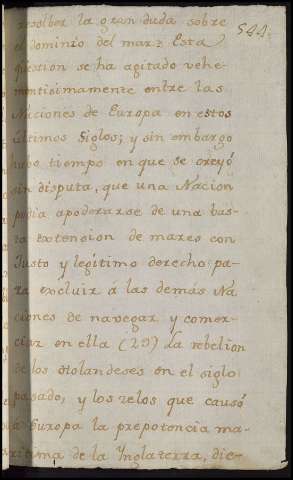 resolber la gran duda sobre
544.
el dominio del mar? Esta
question se ha agitado vehe-
mentisimamente entre las
Naciones de Europa en estos
últimos Siglos; y sin embargo
hubo tiempo en que se creyó
sin disputa, que una Nacion
podia apoderarse de una bas-
ta extension de mares con
Justo y legítimo derecho pa-
ra excluir á las demás Na
ciones de navegar y comer-
ciar en ella (29) La rebelion
de los Holandeses en el siglo
pasado, y los zelos que causó
á Europa la prepotencia ma-
ritima de la Ynglaterra, die-